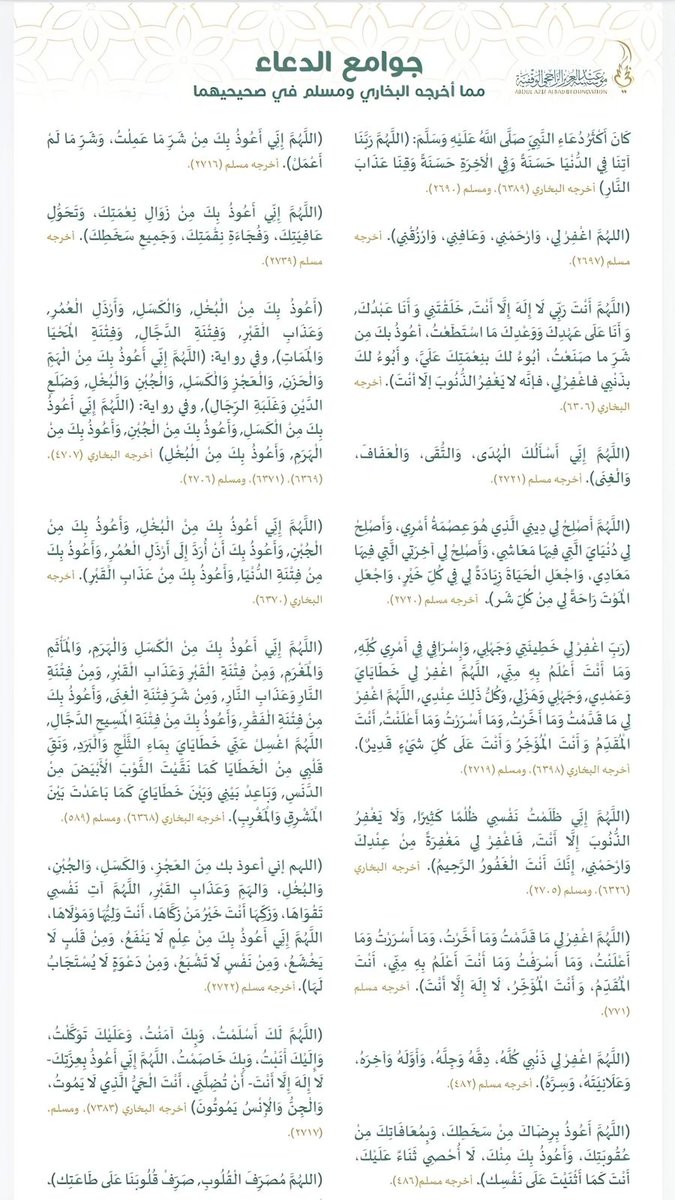 جوامع الدعاء
مما أخرجه البخاري ومسلم في صحيحيهما
مؤسسة عبدالعزيز الراجحي الوقفية
ABDUL AZIZ ALRAJHI FOUNDATION
كَانَ أَكْثَرُ دُعَاءِ النَّبِيِّ صَلَّى اللَّهُ عَلَيْهِ وَسَلَّمَ: (اللَّهُمَّ رَبَّنَا
آتِنَا فِي الدُّنْيَا حَسَنَةً وَفِي الْآخِرَةِ حَسَنَةً وَقِنَا عَذَابَ
النَّارِ) أخرجه البخاري (٦٣٨٩)، ومسلم (٢٦٩٠).
(اللهُمَّ اغْفِرْ لِي، وَارْحَمْنِي، وَعَافِنِي، وَارْزُقْنِي). أخرجه
مسلم (٢٦٩٧).
(اللَّهُمَّ أَنْتَ رَبِّي لَا إِلَهَ إِلَّا أَنْتَ, خَلَقْتَنِي وَأَنَا عَبْدُكَ,
وَأَنَا عَلَى عَهْدِكَ وَوَعْدِكَ مَا اسْتَطَعْتُ، أعُوذُ بكَ مِن
شَرِّ ما صَنَعْتُ، أبُوءُ لكَ بنِعْمَتِكَ عَلَيَّ، وأَبُوءُ لكَ
بذَنْبِي فاغْفِرْلِي، فإنَّه لا يَغْفِرُ الذُّنُوبَ إلَّا أنْتَ). أخرجه
البخاري (٦٣٠٦).
(اللَّهُمَّ إِنِّي أَسْأَلُكَ الْهُدَى، وَالتُّقَى، وَالْعَفَافَ،
وَالْغِنَى). أخرجه مسلم (٢٧٢١).
(اللَّهُمَّ أَصْلِحْ لِي دِينِي الَّذِي هُوَ عِصْمَةُ أَمْرِي، وَأَصْلِحْ
لِي دُنْيَايَ الَّتِي فِيهَا مَعَاشِي، وَأَصْلِحْ لِي آخِرَتِي الَّتِي فِيهَا
مَعَادِي، وَاجْعَلِ الْحَيَاةَ زِيَادَةً لِي فِي كُلِّ خَيْرٍ، وَاجْعَلِ
الْمَوْتَ رَاحَةً لِي مِنْ كُلِّ شَرٍ). أخرجه مسلم (٢٧٢٠).
(رَبِّ اغْفِرْ لِي خَطِيئَتِي وَجَهْلِي, وَإِسْرَافِي فِي أَمْرِي كُلِّهِ,
وَمَا أَنْتَ أَعْلَمُ بِهِ مِنِّي, اللَّهُمَّ اغْفِرْ لِي خَطَايَايَ
وَعَمْدِي, وَجَهْلِي وَهَزْلِي, وَكُلُّ ذَلِكَ عِنْدِي, اللَّهُمَّ اغْفِرْ
لِي مَا قَدَّمْتُ وَمَا أَخَّرْتُ, وَمَا أَسْرَرْتُ وَمَا أَعْلَنْتُ, أَنْتَ
الْمُقَدِّمُ وَأَنْتَ الْمُؤَخِّرُ وَأَنْتَ عَلَى كُلِّ شَيْءٍ قَدِيرٌ).
أخرجه البخاري (٦٣٩٨)، ومسلم (٢٧١٩).
(اللَّهُمَّ إِنِّي ظَلَمْتُ نَفْسِي ظُلْمًا كَثِيْرًا, وَلَا يَغْفِرُ
الذُّنُوبَ إِلَّا أَنْتَ, فَاغْفِرْ لِي مَغْفِرَةً مِنْ عِنْدِكَ
وَارْحَمْنِي, إِنَّكَ أَنْتَ الْغَفُورُ الرَّحِيمُ). أخرجه البخاري
(٦٣٢٦)، ومسلم (٢٧٠٥).
(اللَّهُمَّ اغْفِرْ لِي مَا قَدَّمْتُ وَمَا أَخَّرْتُ، وَمَا أَسْرَرْتُ وَمَا
أَعْلَنْتُ، وَمَا أَسْرَفْتُ وَمَا أَنْتَ أَعْلَمُ بِهِ مِنِّي، أَنْتَ
الْمُقَدِّمُ، وَأَنْتَ الْمُؤَخِّرُ، لَا إِلَهَ إِلَّا أَنْتَ). أخرجه مسلم
(٧٧١).
(اللَّهُمَّ اغْفِرْ لِي ذَنْبِي كُلَّهُ، دِقَّهُ وَجِلَّهُ، وَأَوَّلَهُ وَآخِرَهُ،
وَعَلَانِيَتَهُ، وَسِرَّهُ). أخرجه مسلم (٤٨٢).
(اللَّهُمَّ أَعُوذُ بِرِضَاكَ مِنْ سَخَطِكَ، وَبِمُعَافَاتِكَ مِنْ
عُقُوبَتِكَ، وَأَعُوذُ بِكَ مِنْكَ، لَا أُحْصِي ثَنَاءً عَلَيْكَ،
أَنْتَ كَمَا أَثْنَيْتَ عَلَى نَفْسِكَ). أخرجه مسلم(٤٨٦).
(اللَّهُمَّ إِنِّي أَعُوذُ بِكَ مِنْ شَرِّ مَا عَمِلْتُ، وَشَرِّ مَا لَمْ
أَعْمَلْ). أخرجه مسلم (٢٧١٦).
(اللَّهُمَّ إِنِّي أَعُوذُ بِكَ مِنْ زَوَالِ نِعْمَتِكَ، وَتَحَوُّلِ
عَافِيَتِكَ، وَفُجَاءَةِ نِقْمَتِكَ، وَجَمِيعِ سَخَطِكَ). أخرجه
مسلم (٢٧٣٩).
(أَعُوذُ بِكَ مِنْ الْبُخْلِ, وَالْكَسَلِ, وَأَرْذَلِ الْعُمُرِ,
وَعَذَابِ الْقَبْرِ, وَفِتْنَةِ الدَّجَّالِ, وَفِتْنَةِ الْمَحْيَا
وَالْمَمَاتِ), وفي رواية: (اللَّهُمَّ إِنِّي أَعُوذُ بِكَ مِنْ الْهَمِّ
وَالْحَزَنِ, وَالْعَجْزِ وَالْكَسَلِ, وَالْجُبْنِ وَالْبُخْلِ, وَضَلَعِ
الدَّيْنِ وَغَلَبَةِ الرِّجَالِ), وفي رواية: (اللَّهُمَّ إِنِّي أَعُوذُ
بِكَ مِنْ الْكَسَلِ, وَأَعُوذُ بِكَ مِنْ الْجُبْنِ, وَأَعُوذُ بِكَ مِنْ
الْهَرَمِ, وَأَعُوذُ بِكَ مِنْ الْبُخْلِ) أخرجه البخاري (٤٧٠٧)،
(٦٣٦٩)، (٦٣٧١)، ومسلم (٢٧٠٦).
(اللَّهُمَّ إِنِّي أَعُوذُ بِكَ مِنْ الْبُخْلِ, وَأَعُوذُ بِكَ مِنْ
الْجُبْنِ, وَأَعُوذُ بِكَ أَنْ أُرَدَّ إِلَى أَرْذَلِ الْعُمُرِ, وَأَعُوذُ بِكَ
مِنْ فِتْنَةِ الدُّنْيَا, وَأَعُوذُ بِكَ مِنْ عَذَابِ الْقَبْرِ). أخرجه
البخاري (٦٣٧٠).
(اللَّهُمَّ إِنِّي أَعُوذُ بِكَ مِنْ الْكَسَلِ وَالْهَرَمِ, وَالْمَأْثَمِ
وَالْمَغْرَمِ, وَمِنْ فِتْنَةِ الْقَبْرِ وَعَذَابِ الْقَبْرِ, وَمِنْ فِتْنَةِ
النَّارِ وَعَذَابِ النَّارِ, وَمِنْ شَرِّ فِتْنَةِ الْغِنَى, وَأَعُوذُ بِكَ
مِنْ فِتْنَةِ الْفَقْرِ, وَأَعُوذُ بِكَ مِنْ فِتْنَةِ الْمَسِيحِ الدَّجَّالِ,
اللَّهُمَّ اغْسِلْ عَنِّي خَطَايَايَ بِمَاءِ الثَّلْجِ وَالْبَرَدِ, وَنَقِّ
قَلْبِي مِنْ الْخَطَايَا كَمَا نَقَّيْتَ الثَّوْبَ الْأَبْيَضَ مِنْ
الدَّنَسِ, وَبَاعِدْ بَيْنِي وَبَيْنَ خَطَايَايَ كَمَا بَاعَدْتَ بَيْنَ
الْمَشْرِقِ وَالْمَغْرِبِ). أخرجه البخاري (٦٣٦٨)، ومسلم (٥٨٩).
(اللهم إني أعوذ بك مِنَ العَجْزِ، وَالكَسَلِ، وَالجُبْنِ،
وَالبُخْلِ، وَالهَمِّ وَعَذَابِ القَبْرِ, اللَّهُمَّ آتِ نَفْسِي
تَقْوَاهَا، وَزَكِّهَا أَنْتَ خَيْرُ مَنْ زَكَّاهَا، أَنْتَ وَلِيُّهَا وَمَوْلَاهَا،
اللَّهُمَّ إِنِّي أَعُوذُ بِكَ مِنْ عِلْمٍ لَا يَنْفَعُ، وَمِنْ قَلْبٍ لَا
يَخْشَعُ، وَمِنْ نَفْسٍ لَا تَشْبَعُ، وَمِنْ دَعْوَةٍ لَا يُسْتَجَابُ
لَهَا). أخرجه مسلم (٢٧٢٢).
(اللَّهُمَّ لَكَ أَسْلَمْتُ، وَبِكَ آمَنْتُ، وَعَلَيْكَ تَوَكَّلْتُ،
وَإِلَيْكَ أَنَبْتُ، وَبِكَ خَاصَمْتُ، اللَّهُمَّ إِنِّي أَعُوذُ بِعِزَّتِكَ-
لَا إِلَهَ إِلَّا أَنْتَ- أَنْ تُضِلَّنِي، أَنْتَ الْحَيُّ الَّذِي لَا يَمُوتُ،
وَالْجِنُّ وَالْإِنْسُ يَمُوتُونَ) أخرجه البخاري (٧٣٨٣)، ومسلم.
(٢٧١٧).
(اللهُمَّ مُصَرِّفَ الْقُلُوبِ, صَرِّفْ قُلُوبَنَا عَلَى طَاعَتِكَ).